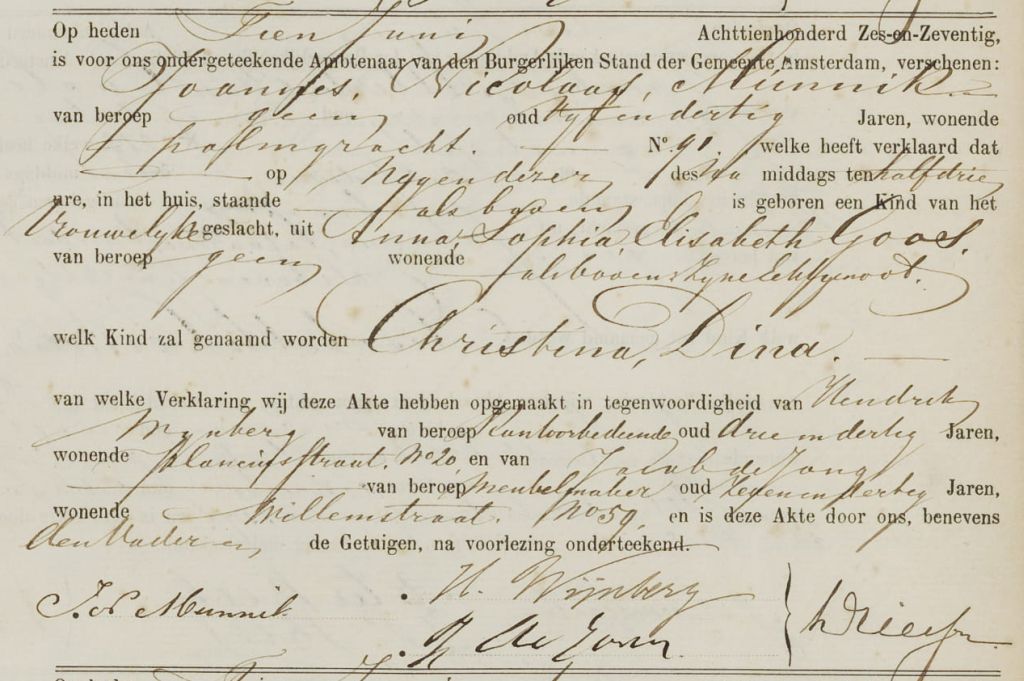 Op heden Tien Junij Achttienhonderd Zes-en-Zeventig,
is voor ons ondergeteekende Ambtenaar van den Burgerlijken Stand der Gemeente Amsterdam, verschenen:
Joannes, Nicolaas, Munnik
van beroep geen oud Vyf en dertig Jaren, wonende
palmgracht. No. 91. welke heeft verklaard dat
op Negen dezer des Na middags ten half drie
ure, in het huis, staande als boven is geboren een Kind van het
Vrouwelyke geslacht, uit Anna, Sophia, Elisabeth Goos,
van beroep geen wonende als boven zyne Echtgenoot.
welk Kind zal genaamd worden Christina, Dina.
van welke Verklaring wij deze Akte hebben opgemaakt in tegenwoordigheid van Hendrik
Wynberg van beroep Kantoorbediende oud drie en dertig Jaren,
wonende plancius straat, No 20, en van Jacob de Jong
van beroep Meubelmaker oud Zegen en dertig Jaren,
wonende Willemstraat. No 59, en is deze Akte door ons, benevens
den Vader en de Getuigen, na voorlezing onderteekend.
J. N Munnik H. Wijnberg
J de Jong